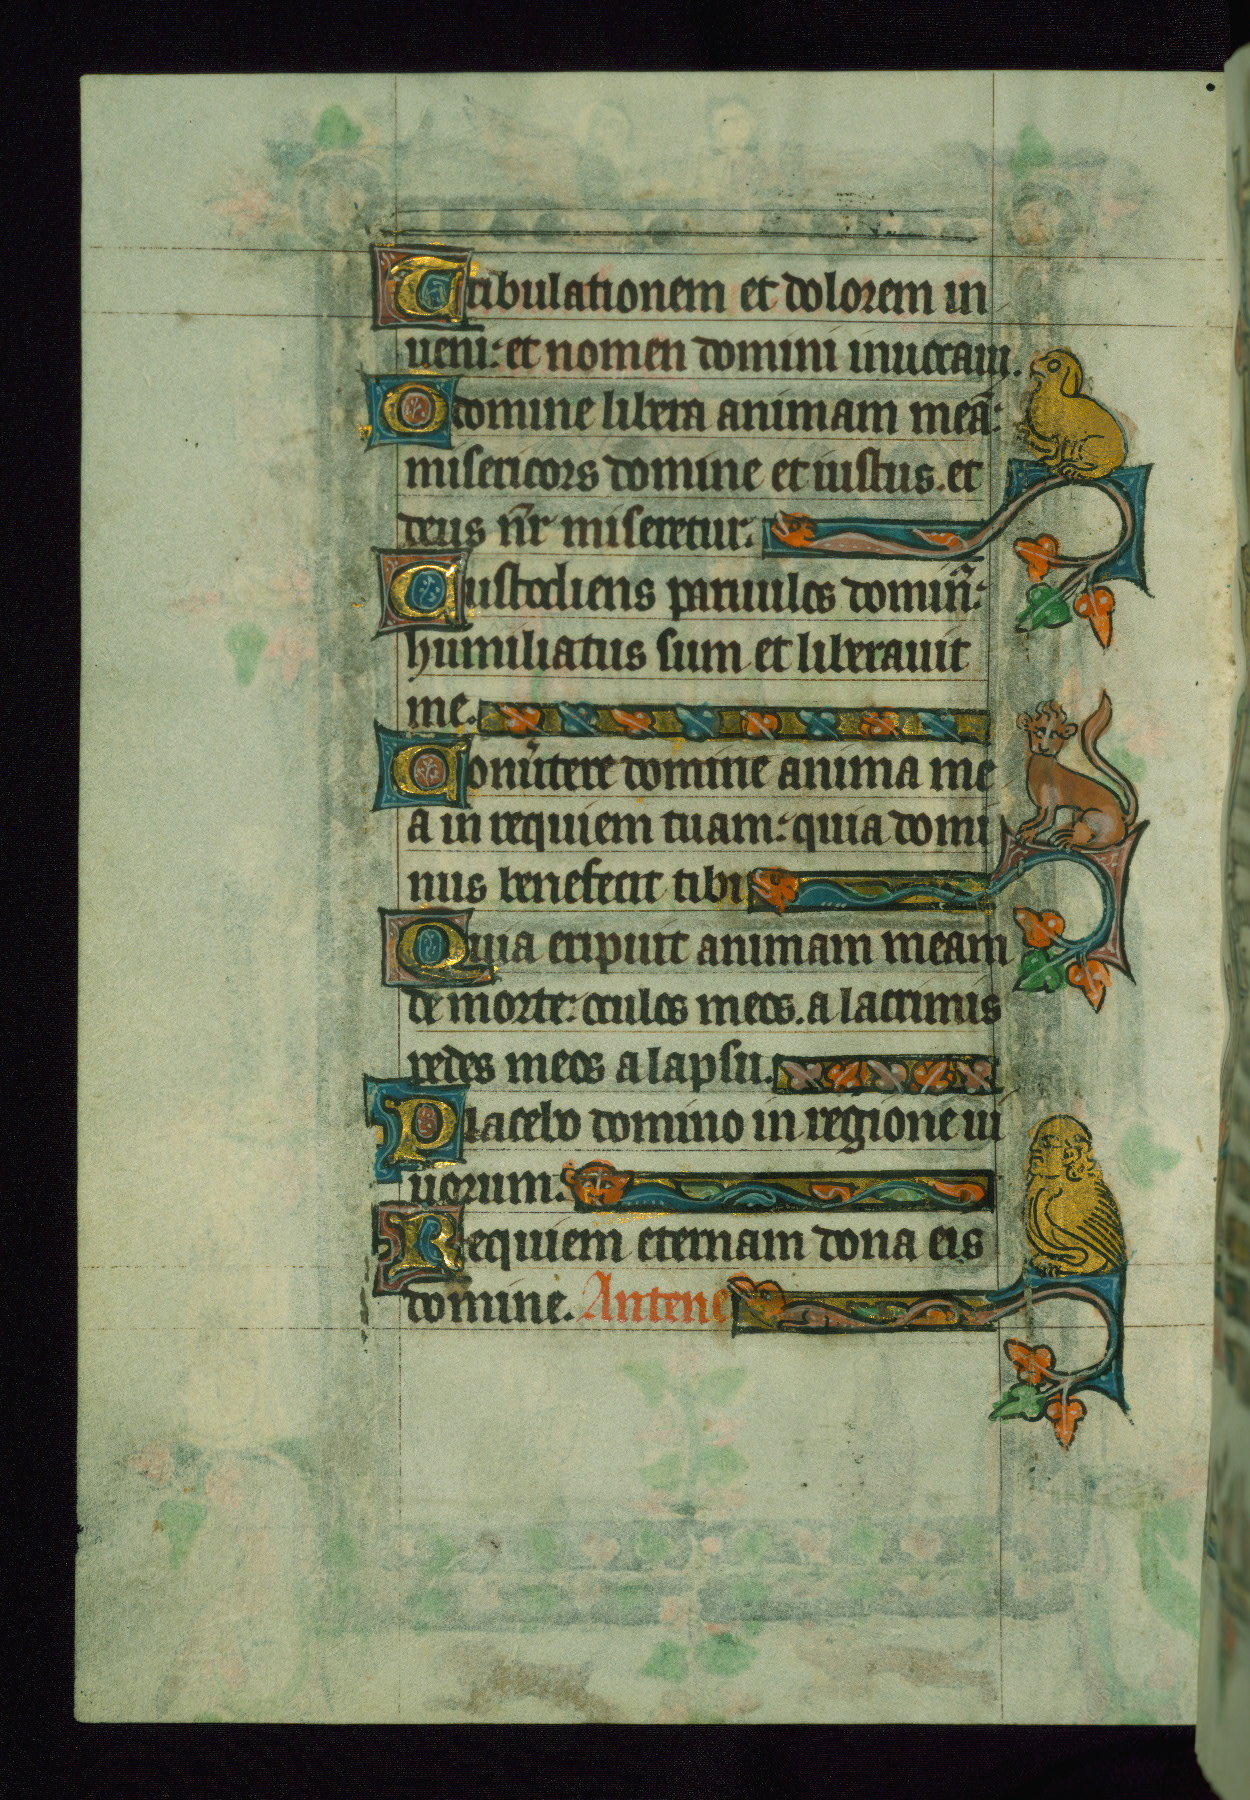 Tribulationem et dolorem in
ueni: et nomen domini inuocaui.
O domine libera animam meā:
misericors domine et iustus. et
deus nr̄ miseretur.
Custodiens paruulos domin̄:
humiliatus sum et liberauit
me.
Conũtere domine anima me
a in requiem tuam: quia domi
nus benefecit tibi
Quia eripuit animam meam
de morte: oculos meos. a lacrimis
pedes meos a lapsu.
Placebo domino in regione ui
uorum.
Requiem eternam dona eis
domine. Antene